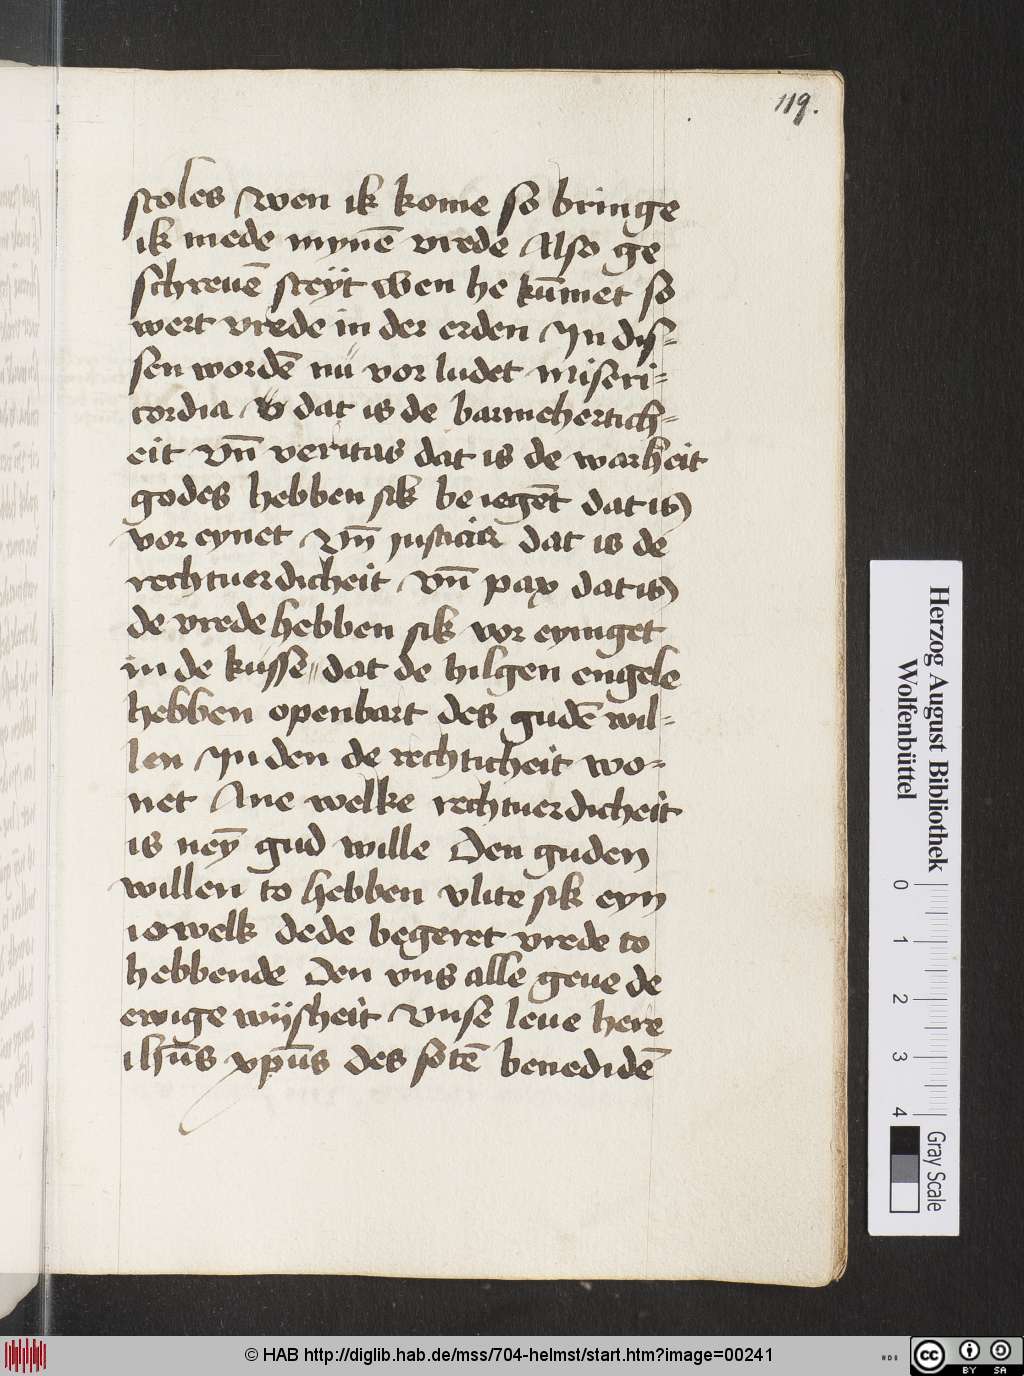 119.
stoles Wen ik kome so bringe
ik mede mynē vrede Also ge
schreuē steÿt Wen he kūmet so
wert vrede in der erden In dis-
sen wordē nu vor ludet miseri-
cordia dat is de barmehertich-
eit Vn̄ veritas dat is de warheit
godes hebben sik be iegēt dat is
vor eynet Vn̄ justicia dat is de
rechtuerdicheit Vn̄ pax dat is
de vrede hebben sik vor eyniget
in de kusse dat de hilgen engele
hebben openbart des gudē wil-
len In den de rechticheit wo-
net Ane welke rechtuerdicheit
is neȳ gud wille Den guden
willen to hebben vlite sik eyn
iowelk dede begeret vrede to
hebbende Den vns alle geue de
ewige wijsheit Vnse leue here
ihūs xpūs des sotē benedidē
Herzog August Bibliothek
Wolfenbüttel
0 1 2 3 4
Gray Scale
© HAB http://diglib.hab.de/mss/704-helmst/start.htm?image=00241
cc BY SA